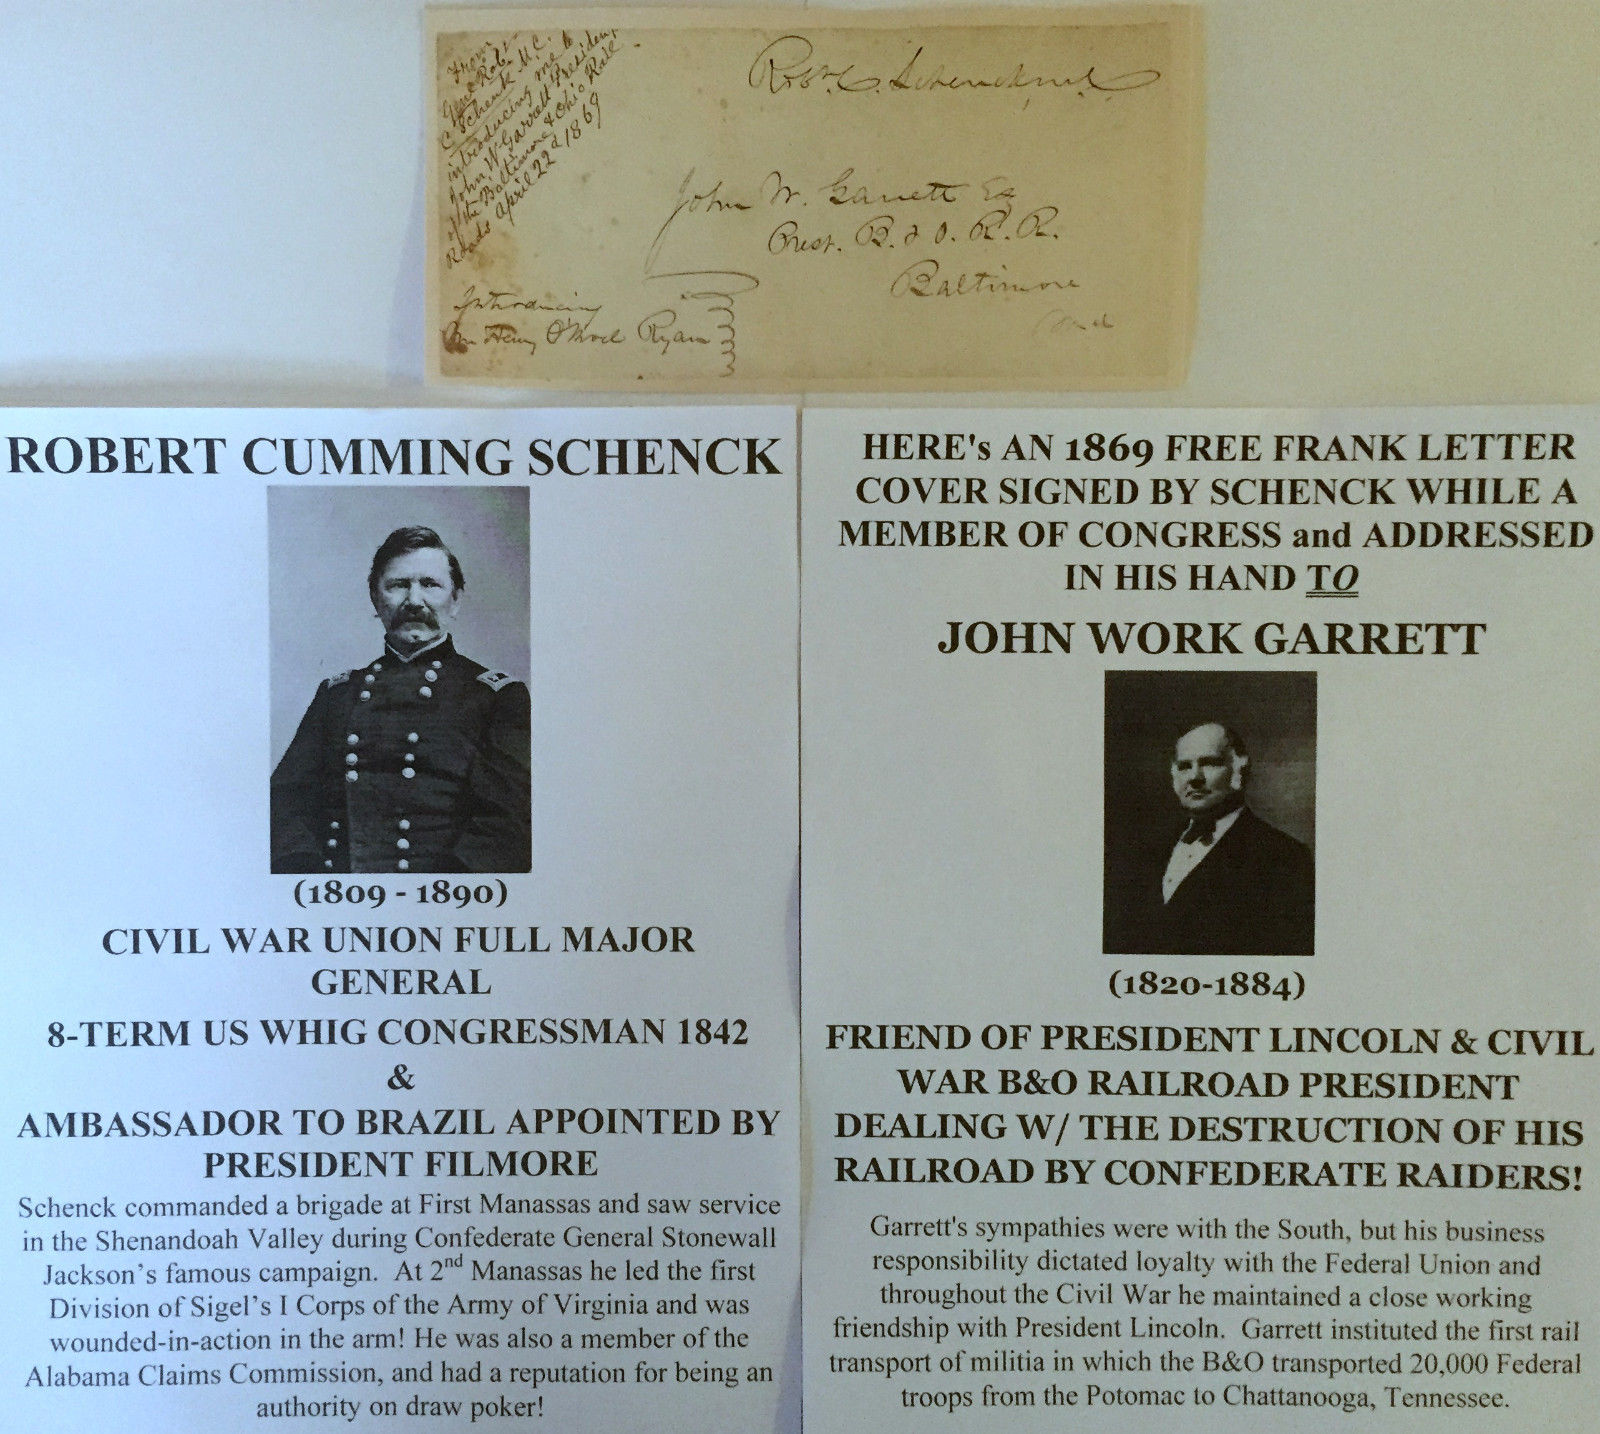 From
Genl Robt
C Schenk M.C.
introducing me to
John W Garrett President
of the Baltimore & Ohio Rail
Roads April 22d 1869
Robt. C. Schenck M.C.
John W. Garrett Esq
Prest. B. & O. R. R.
Baltimore
Md
Introducing
Mr Henry Ryan
ROBERT CUMMING SCHENCK
(1809 - 1890)
CIVIL WAR UNION FULL MAJOR
GENERAL
8-TERM US WHIG CONGRESSMAN 1842
&
AMBASSADOR TO BRAZIL APPOINTED BY
PRESIDENT FILMORE
Schenck commanded a brigade at First Manassas and saw service
in the Shenandoah Valley during Confederate General Stonewall
Jackson's famous campaign. At 2nd Manassas he led the first
Division of Sigel's I Corps of the Army of Virginia and was
wounded-in-action in the arm! He was also a member of the
Alabama Claims Commission, and had a reputation for being an
authority on draw poker!
HERE's AN 1869 FREE FRANK LETTER
COVER SIGNED BY SCHENCK WHILE A
MEMBER OF CONGRESS and ADDRESSED
IN HIS HAND TO
JOHN WORK GARRETT
(1820-1884)
FRIEND OF PRESIDENT LINCOLN & CIVIL
WAR B&O RAILROAD PRESIDENT
DEALING W/ THE DESTRUCTION OF HIS
RAILROAD BY CONFEDERATE RAIDERS!
Garrett's sympathies were with the South, but his business
responsibility dictated loyalty with the Federal Union and
throughout the Civil War he maintained a close working
friendship with President Lincoln. Garrett instituted the first rail
transport of militia in which the B&O transported 20,000 Federal
troops from the Potomac to Chattanooga, Tennessee.